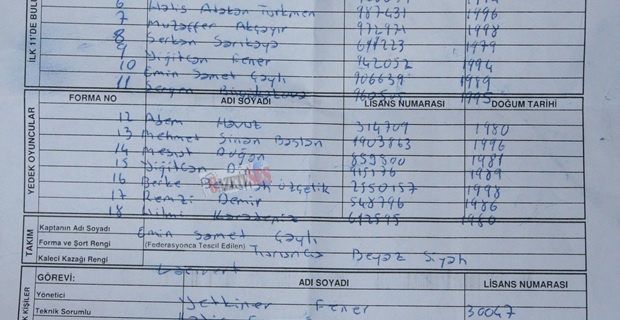 İLK 11'DE BULU
6 Halis Atakan Türkmen 1996
7 Muzaffer Akçayır 972971 1998
8 Serkan Sarıkaya 611223 1979
9 Yiğitcan Fener 942052 1994
10 Emin Samet Çaylı 906639 1989
11 1995
YEDEK OYUNCULAR
FORMA NO ADI SOYADI LİSANS NUMARASI DOĞUM TARİHİ
12 Adem Havuz 314709 1980
13 Mehmet Sinan Baslan 1903863 1996
14 Mesut Doğan 859300 1981
15 Yiğitcan 915176 1989
16 Berke Özçelik 2550157 1998
17 Remzi Demir 548796 1986
18 Hilmi Karadeniz 612595 1980
TAKIM
Kaptanın Adı Soyadı Emin Samet Çaylı
Forma ve Şort Rengi (Federasyonca Tescil Edilen) Turuncu Beyaz Siyah
Kaleci Kazağı Rengi Lacivert
K KİŞİLER
GÖREVİ: ADI SOYADI LİSANS NUMARASI
Yönetici
Teknik Sorumlu Yetkiner Fener 30047